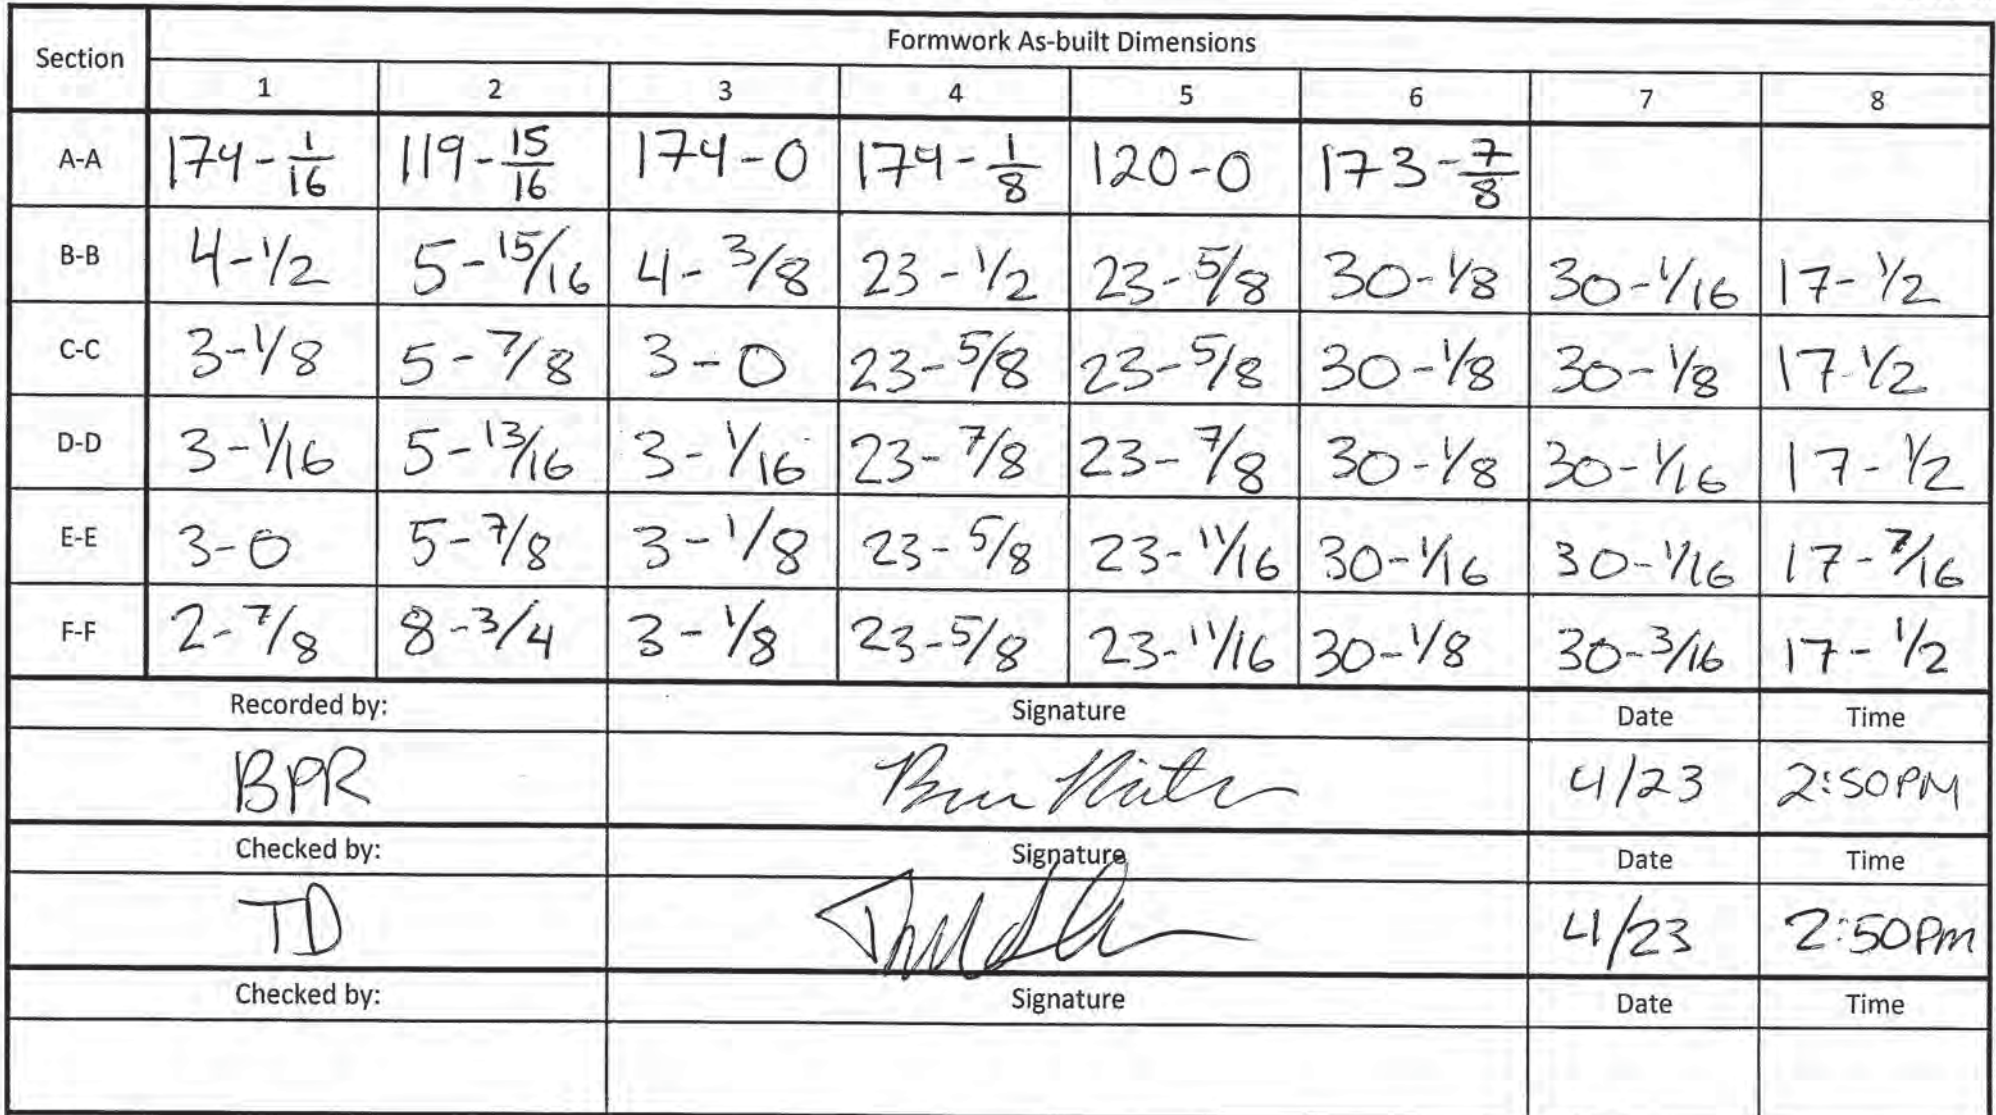 Formwork As-built Dimensions
Section
1 2 3 4 5 6 7 8
A-A 174-1/16 119-15/16 174-0 174-1/8 120-0 173-7/8
B-B 4-1/2 5-15/16 4-3/8 23-1/2 23-5/8 30-1/8 30-1/16 17-1/2
C-C 3-1/8 5-7/8 3-0 23-5/8 23-5/8 30-1/8 30-1/8 17-1/2
D-D 3-1/16 5-13/16 3-1/16 23-7/8 23-7/8 30-1/8 30-1/16 17-1/2
E-E 3-0 5-7/8 3-1/8 23-5/8 23-11/16 30-1/16 30-1/16 17-7/16
F-F 2-7/8 8-3/4 3-1/8 23-5/8 23-11/16 30-1/8 30-3/16 17-1/2
Recorded by: Signature Date Time
BPR 4/23 2:50PM
Checked by: Signature Date Time
TD 4/23 2:50pm
Checked by: Signature Date Time